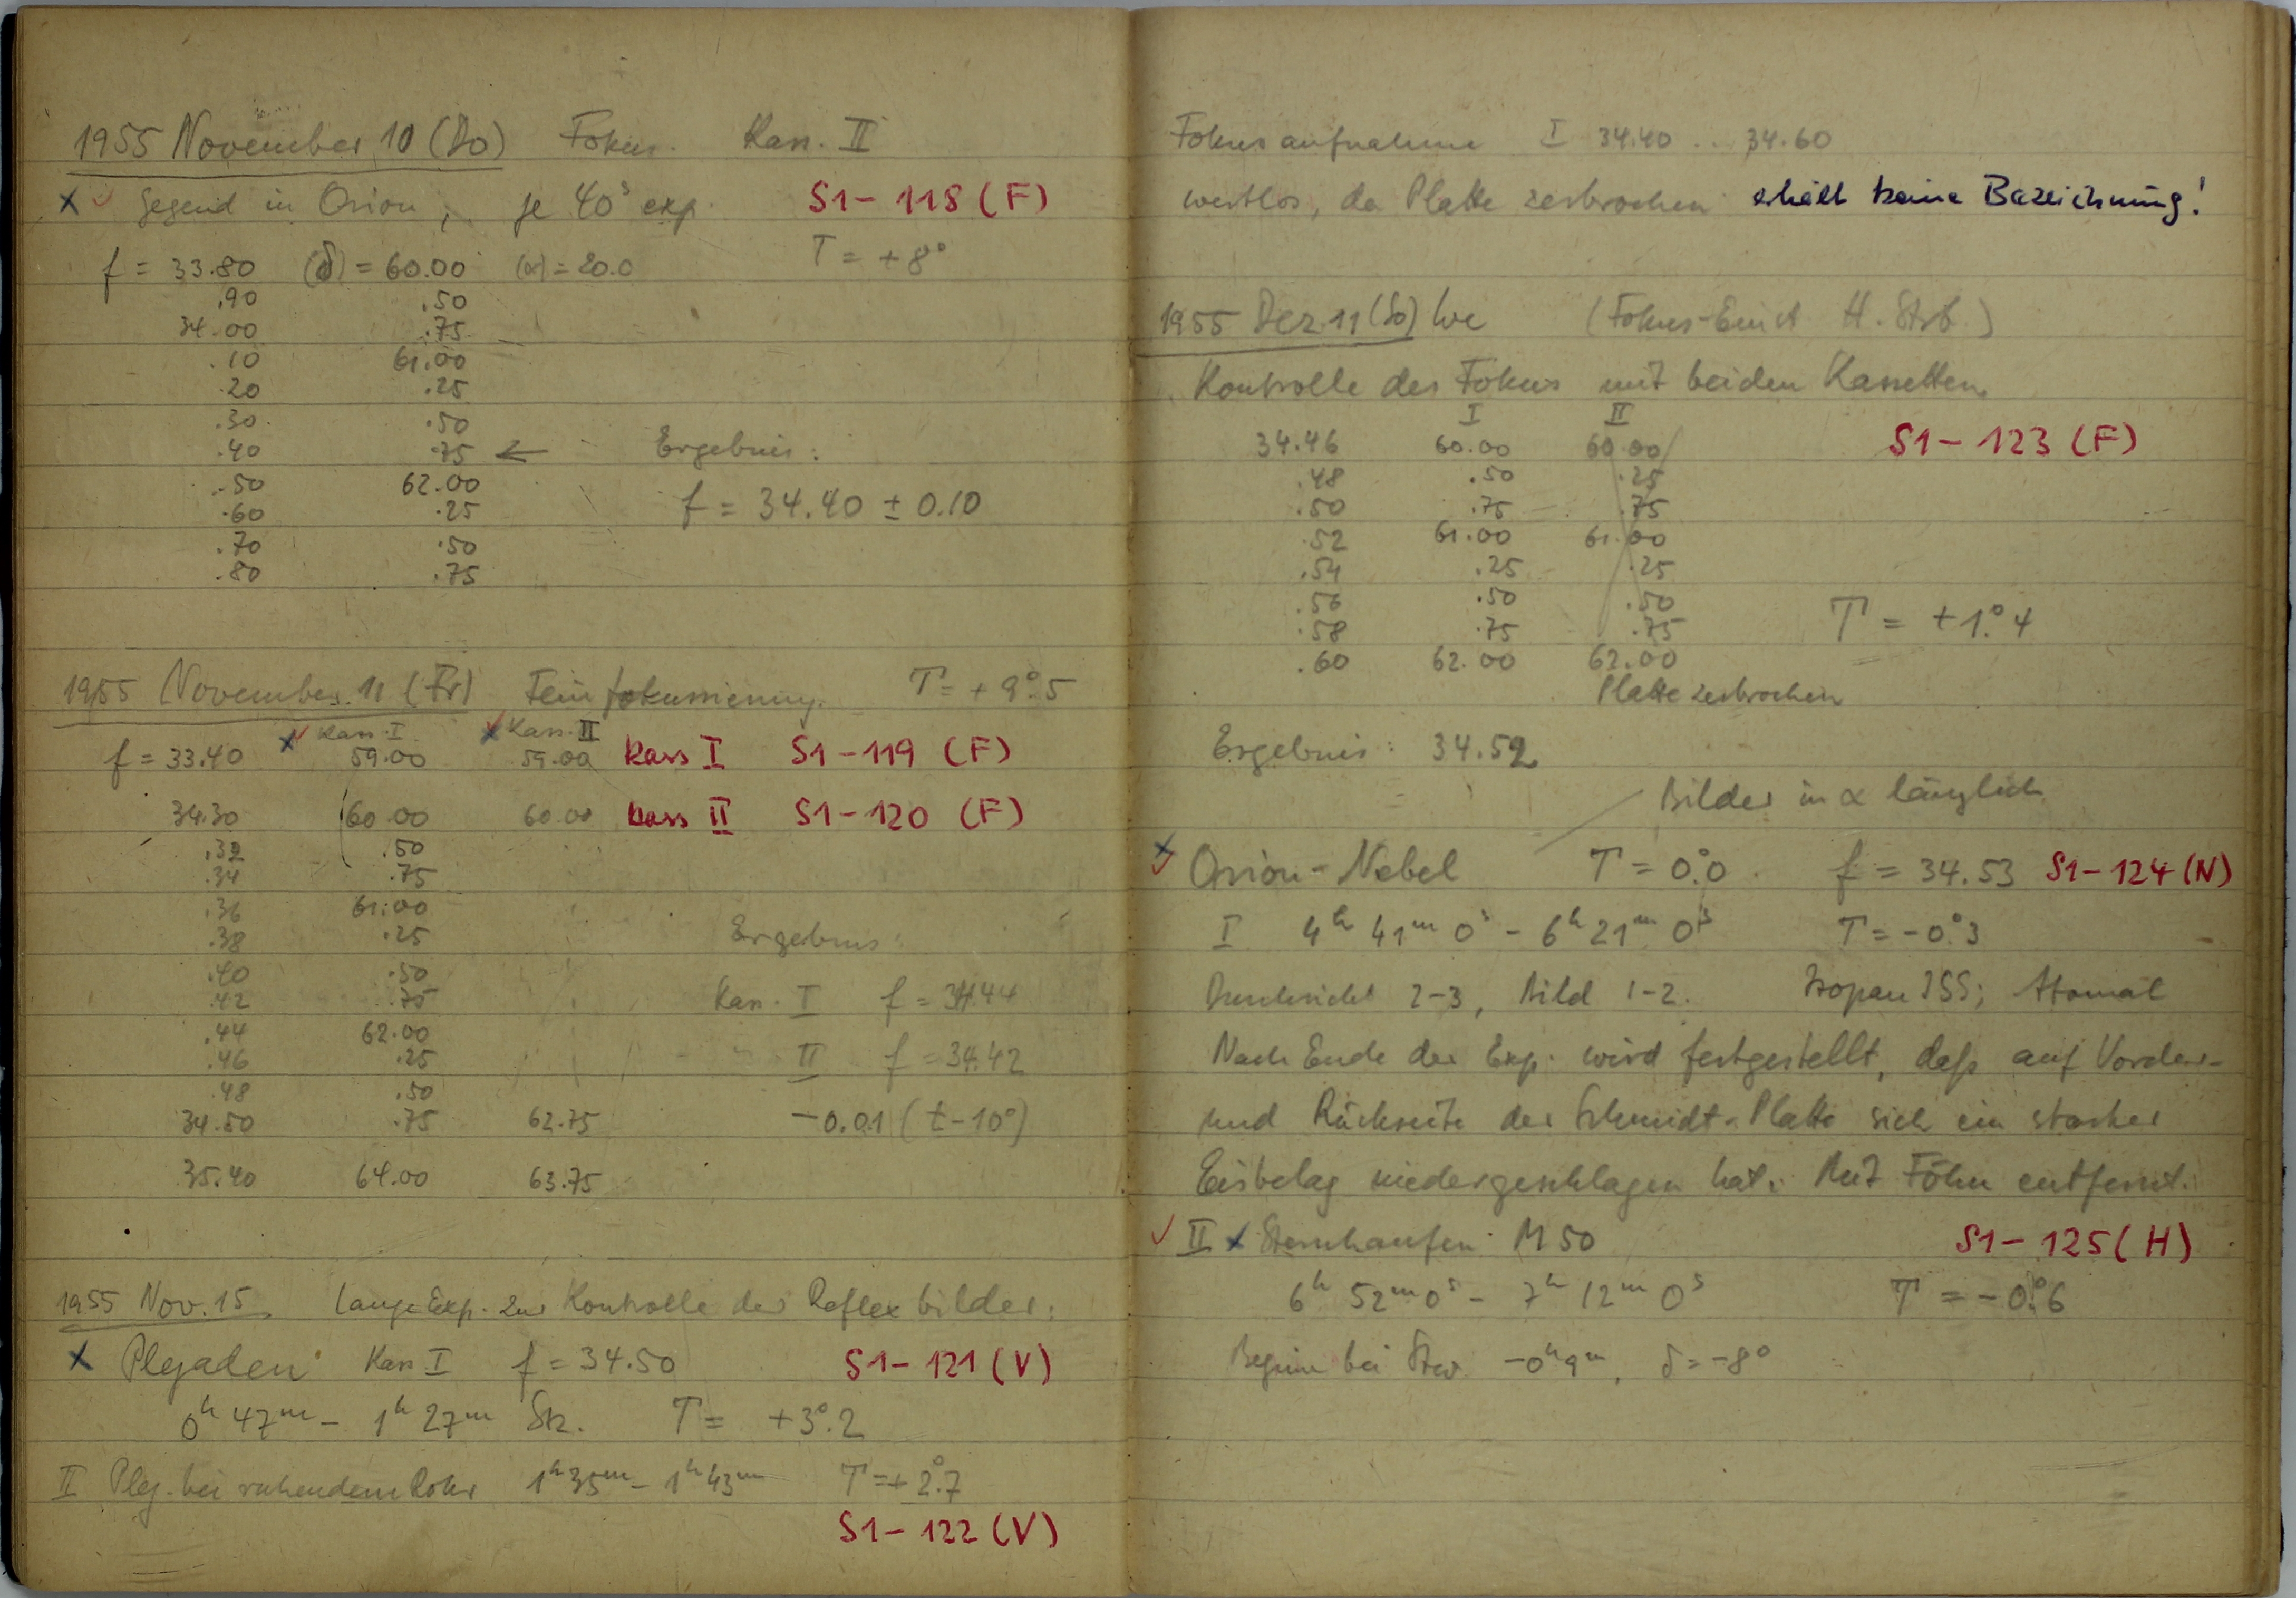 1955 November 10 (Do) Fokus. Kass. II
x ✓ Gegend in Orion, je 40ˢ exp. S1-118 (F)
f = 33.80 (δ) = 60.00 (α) = 20.0 T = +8°
.90 .50
34.00 .75
.10 61.00
.20 .25
.30 .50
.40 .75 ← Ergebnis:
.50 62.00
f = 34.40 ± 0.10
.60 .25
.70 .50
.80 .75
1955 November 11 (Fr) Feinfokussierung T = +9°.5
x ✓ Kass. I x ✓ Kass. II
f = 33.40 59.00 59.00 Kass I S1-119 (F)
34.30 60.00 60.00 Kass II S1-120 (F)
.32 .50
.34 .75
.36 61.00
.38 .25 Ergebnis:
.40 .50
.42 .75 Kass. I f = 34.44
.44 62.00
.46 .25 II f = 34.42
.48 .50
34.50 .75 62.75 -0.01 (t-10°)
35.40 64.00 63.75
1955 Nov. 15 Lange Exp. zur Kontrolle der Reflexbilder:
x Plejaden Kass I f = 34.50 S1-121 (V)
0ʰ 47ᵐ - 1ʰ 27ᵐ Stz. T = +3°.2
II Plej. bei ruhendem Rohr 1ʰ 35ᵐ - 1ʰ 43ᵐ T = +2°.7
S1-122 (V)
Fokusaufnahme I 34.40 .. 34.60
wertlos, da Platte zerbrochen erhält keine Bezeichnung!
1955 Dez. 11 (So) We (Fokus-Einst H. Strb.)
Kontrolle des Fokus mit beiden Kassetten
I II
34.46 60.00 60.00 S1-123 (F)
.48 .50 .25
.50 .75 .75
.52 61.00 61.00
.54 .25 .25
.56 .50 .50
.58 .75 .75 T = +1°.4
.60 62.00 62.00
Platte zerbrochen
Ergebnis: 34.52
Bilder in α länglich
x ✓ Orion-Nebel T = 0°.0 f = 34.53 S1-124 (N)
I 4ʰ 41ᵐ 0ˢ - 6ʰ 21ᵐ 0ˢ T = -0°.3
Durchsicht 2-3, Bild 1-2. Isopan ISS; Atomal
Nach Ende der Exp. wird festgestellt, daß auf Vorder-
und Rückseite der Schmidt-Platte sich ein starker
Eisbelag niedergeschlagen hat. Mit Föhn entfernt.
✓ II x Sternhaufen M 50 S1-125 (H)
6ʰ 52ᵐ 0ˢ - 7ʰ 12ᵐ 0ˢ T = -0°.6
Beginn bei Stw -0ʰ 9ᵐ, δ = -8°